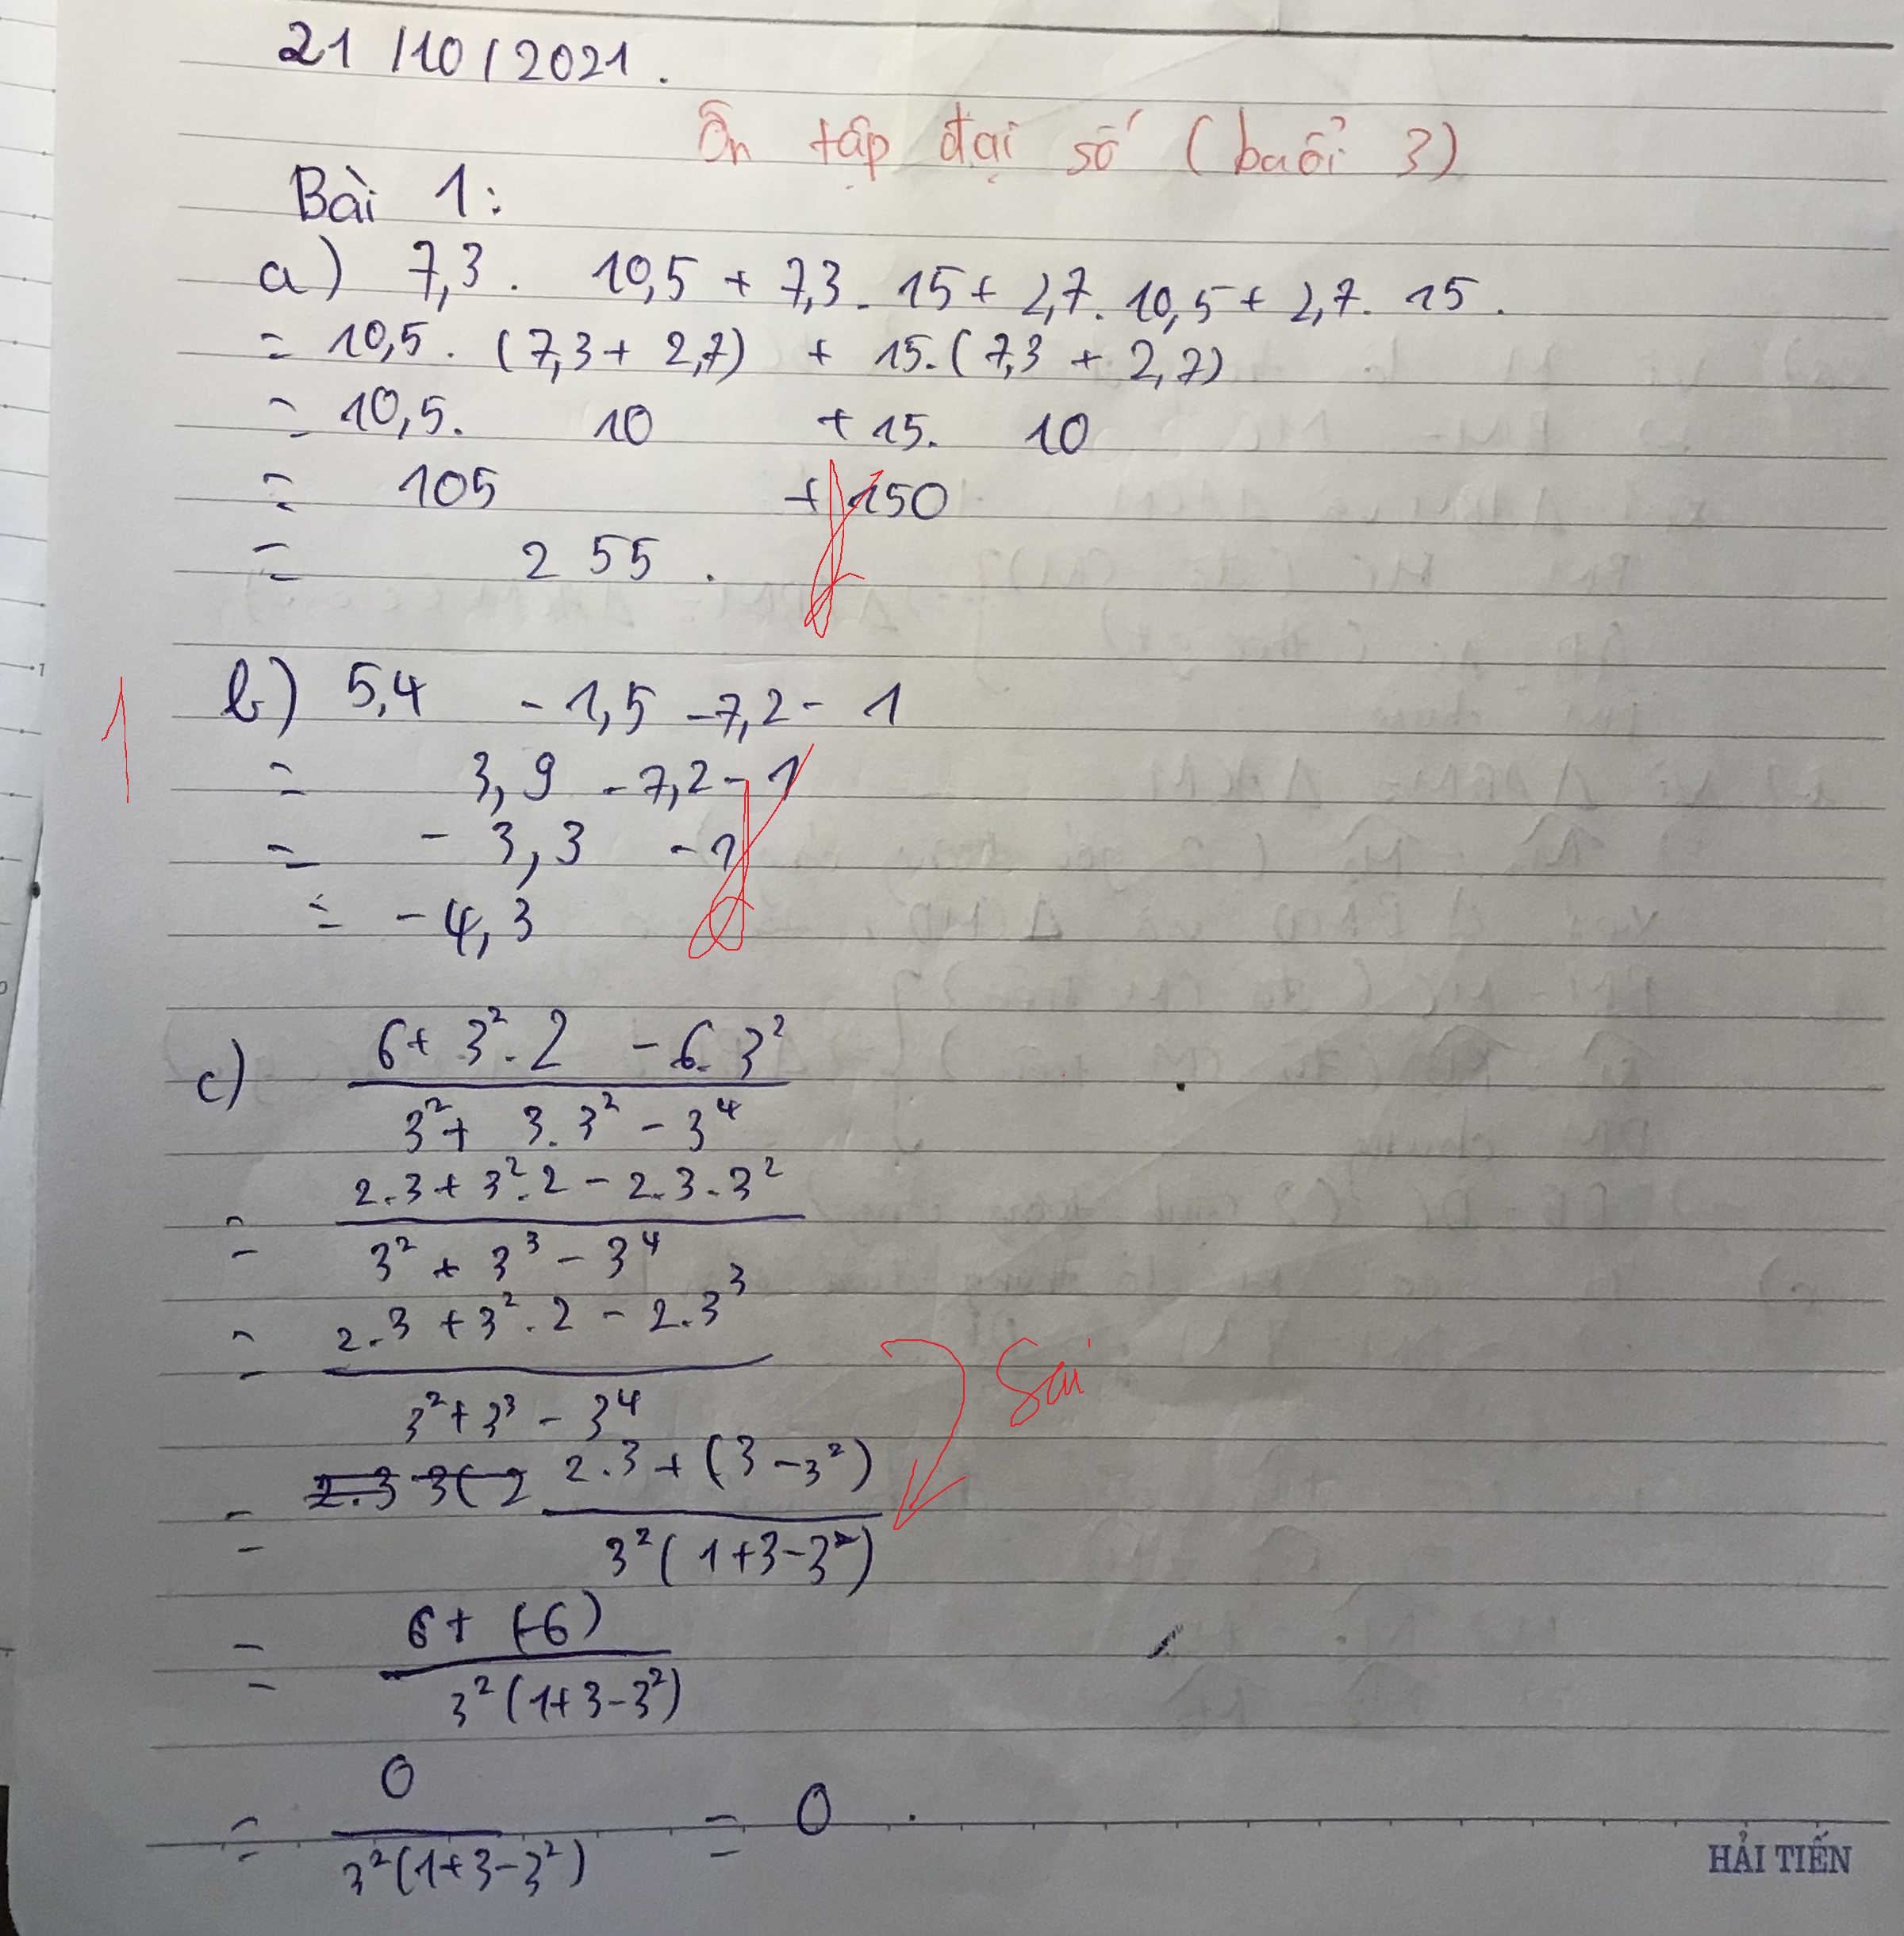 21/10/2021.
Ôn tập đại số (buổi 3)
Bài 1:
a) 7,3. 10,5 + 7,3. 15 + 2,7. 10,5 + 2,7. 15.
= 10,5. (7,3 + 2,7) + 15. (7,3 + 2,7)
= 10,5. 10 + 15. 10
= 105 + 150
= 255.
1
b) 5,4 - 1,5 - 7,2 - 1
= 3,9 - 7,2 - 1
= - 3,3 - 1
= - 4,3
c) 6 + 3². 2 - 6. 3²
3² + 3. 3² - 3⁴
= 2.3 + 3². 2 - 2.3.3²
3² + 3³ - 3⁴
= 2.3 + 3². 2 - 2.3³
3² + 3³ - 3⁴
Sai
= 2.3 3(2 2.3 + (3 - 3²)
3² (1 + 3 - 3²)
= 6 + (-6)
3² (1 + 3 - 3²)
= 0
3² (1 + 3 - 3²) = 0.
HẢI TIẾN